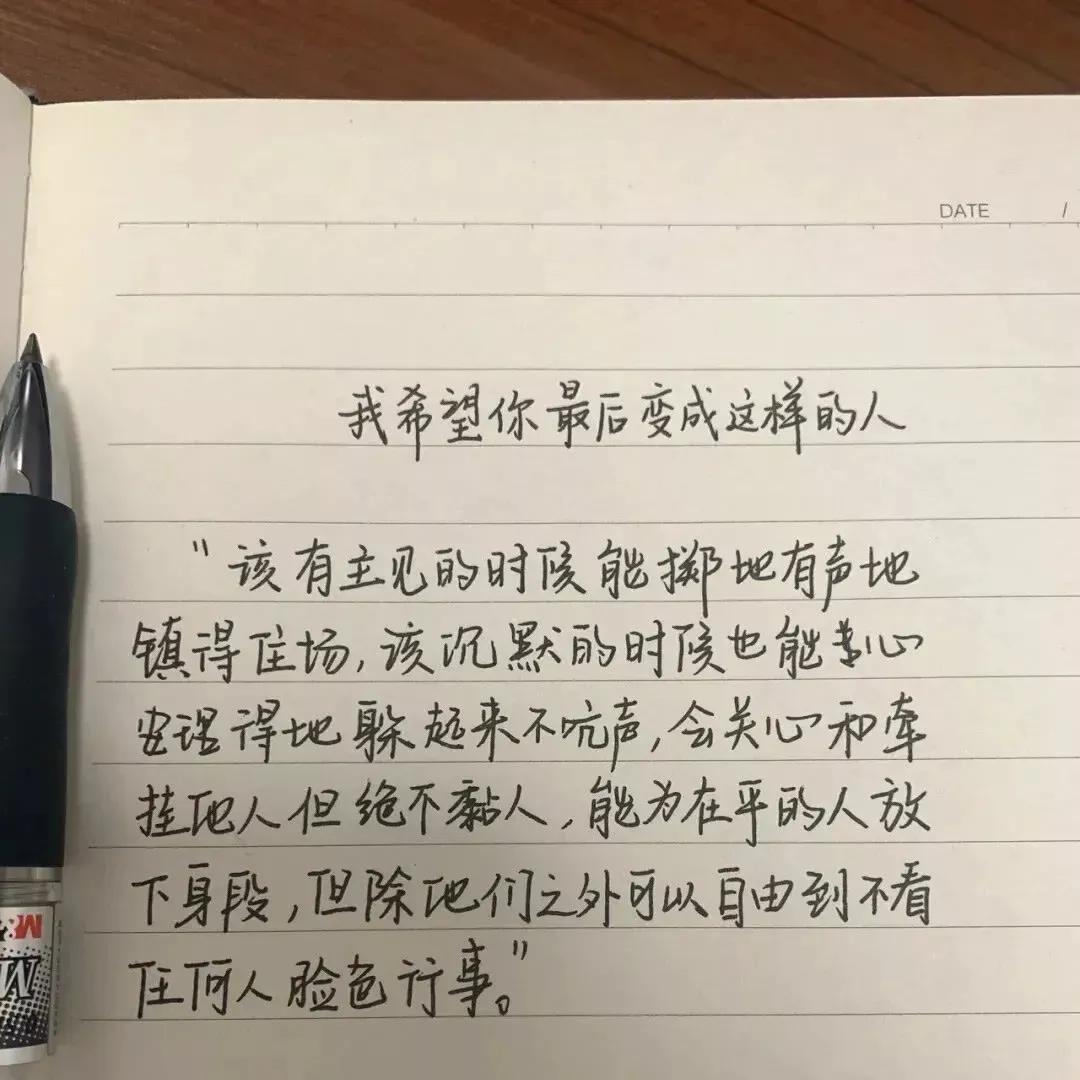 DATE /
我希望你最后变成这样的人
"该有主见的时候能掷地有声地
镇得住场,该沉默的时候也能心
安理得地躲起来不吭声,会关心和牵
挂他人但绝不黏人,能为在乎的人放
下身段,但除他们之外可以自由到不看
任何人脸色行事。"
M&
M